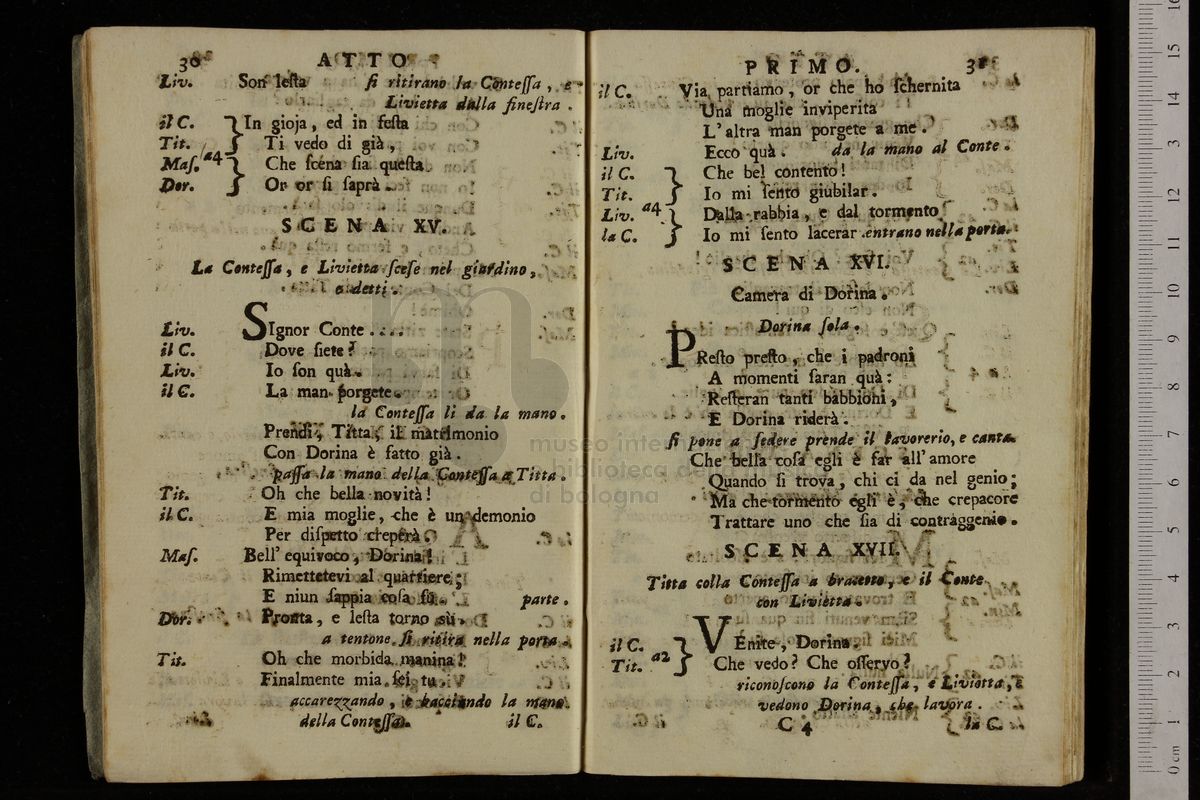 30 ATTO
Liv. Son lesta si ritirano la Contessa, e
Livietta dalla finestra.
il C. In gioja, ed in festa
Tit. Ti vedo di già,
Mas. a4 Che scena sia questa
Dor. Or or si saprà.
SCENA XV.
La Contessa, e Livietta scese nel giardino,
e detti.
Liv. SIgnor Conte....
il C. Dove siete?
Liv. Io son quà.
il C. La man porgete.
la Contessa li da la mano.
Prendi, Titta, il matrimonio
Con Dorina è fatto già.
passa la mano della Contessa a Titta.
Tit. Oh che bella novità!
il C. E mia moglie, che è un demonio
Per dispetto creperà.
Mas. Bell' equivoco, Dorina!
Rimettetevi al quartiere;
E niun sappia cosa fù. parte.
Dor. Pronta, e lesta torno sù.
a tentone si ritira nella porta.
Tit. Oh che morbida manina!
Finalmente mia sei tu.
accarezzando, e bacciando la mano
della Contessa. il C.
PRIMO. 31
il C. Via partiamo, or che ho schernita
Una moglie inviperita
L'altra man porgete a me.
Liv. Ecco quà. da la mano al Conte.
il C. Che bel contento!
Tit. Io mi sento giubilar.
Liv. a4 Dalla rabbia, e dal tormento
la C. Io mi sento lacerar. entrano nella porta.
SCENA XVI.
Camera di Dorina.
Dorina sola.
PResto presto, che i padroni
A momenti saran quà:
Resteran tanti babbioni,
E Dorina riderà.
si pone a sedere prende il lavorerio, e canta.
Che bella cosa egli è far all' amore
Quando si trova, chi ci da nel genio;
Ma che tormento egli è, che crepacore
Trattare uno che sia di contraggenio.
SCENA XVII.
Titta colla Contessa a braccetto, e il Conte
con Livietta.
il C. VEnite, Dorina.
Tit. a2 Che vedo? Che osservo?
riconoscono la Contessa, e Livietta, e
vedono Dorina, che lavora.
C 4 la C.
museo
biblioteca della
di bologna